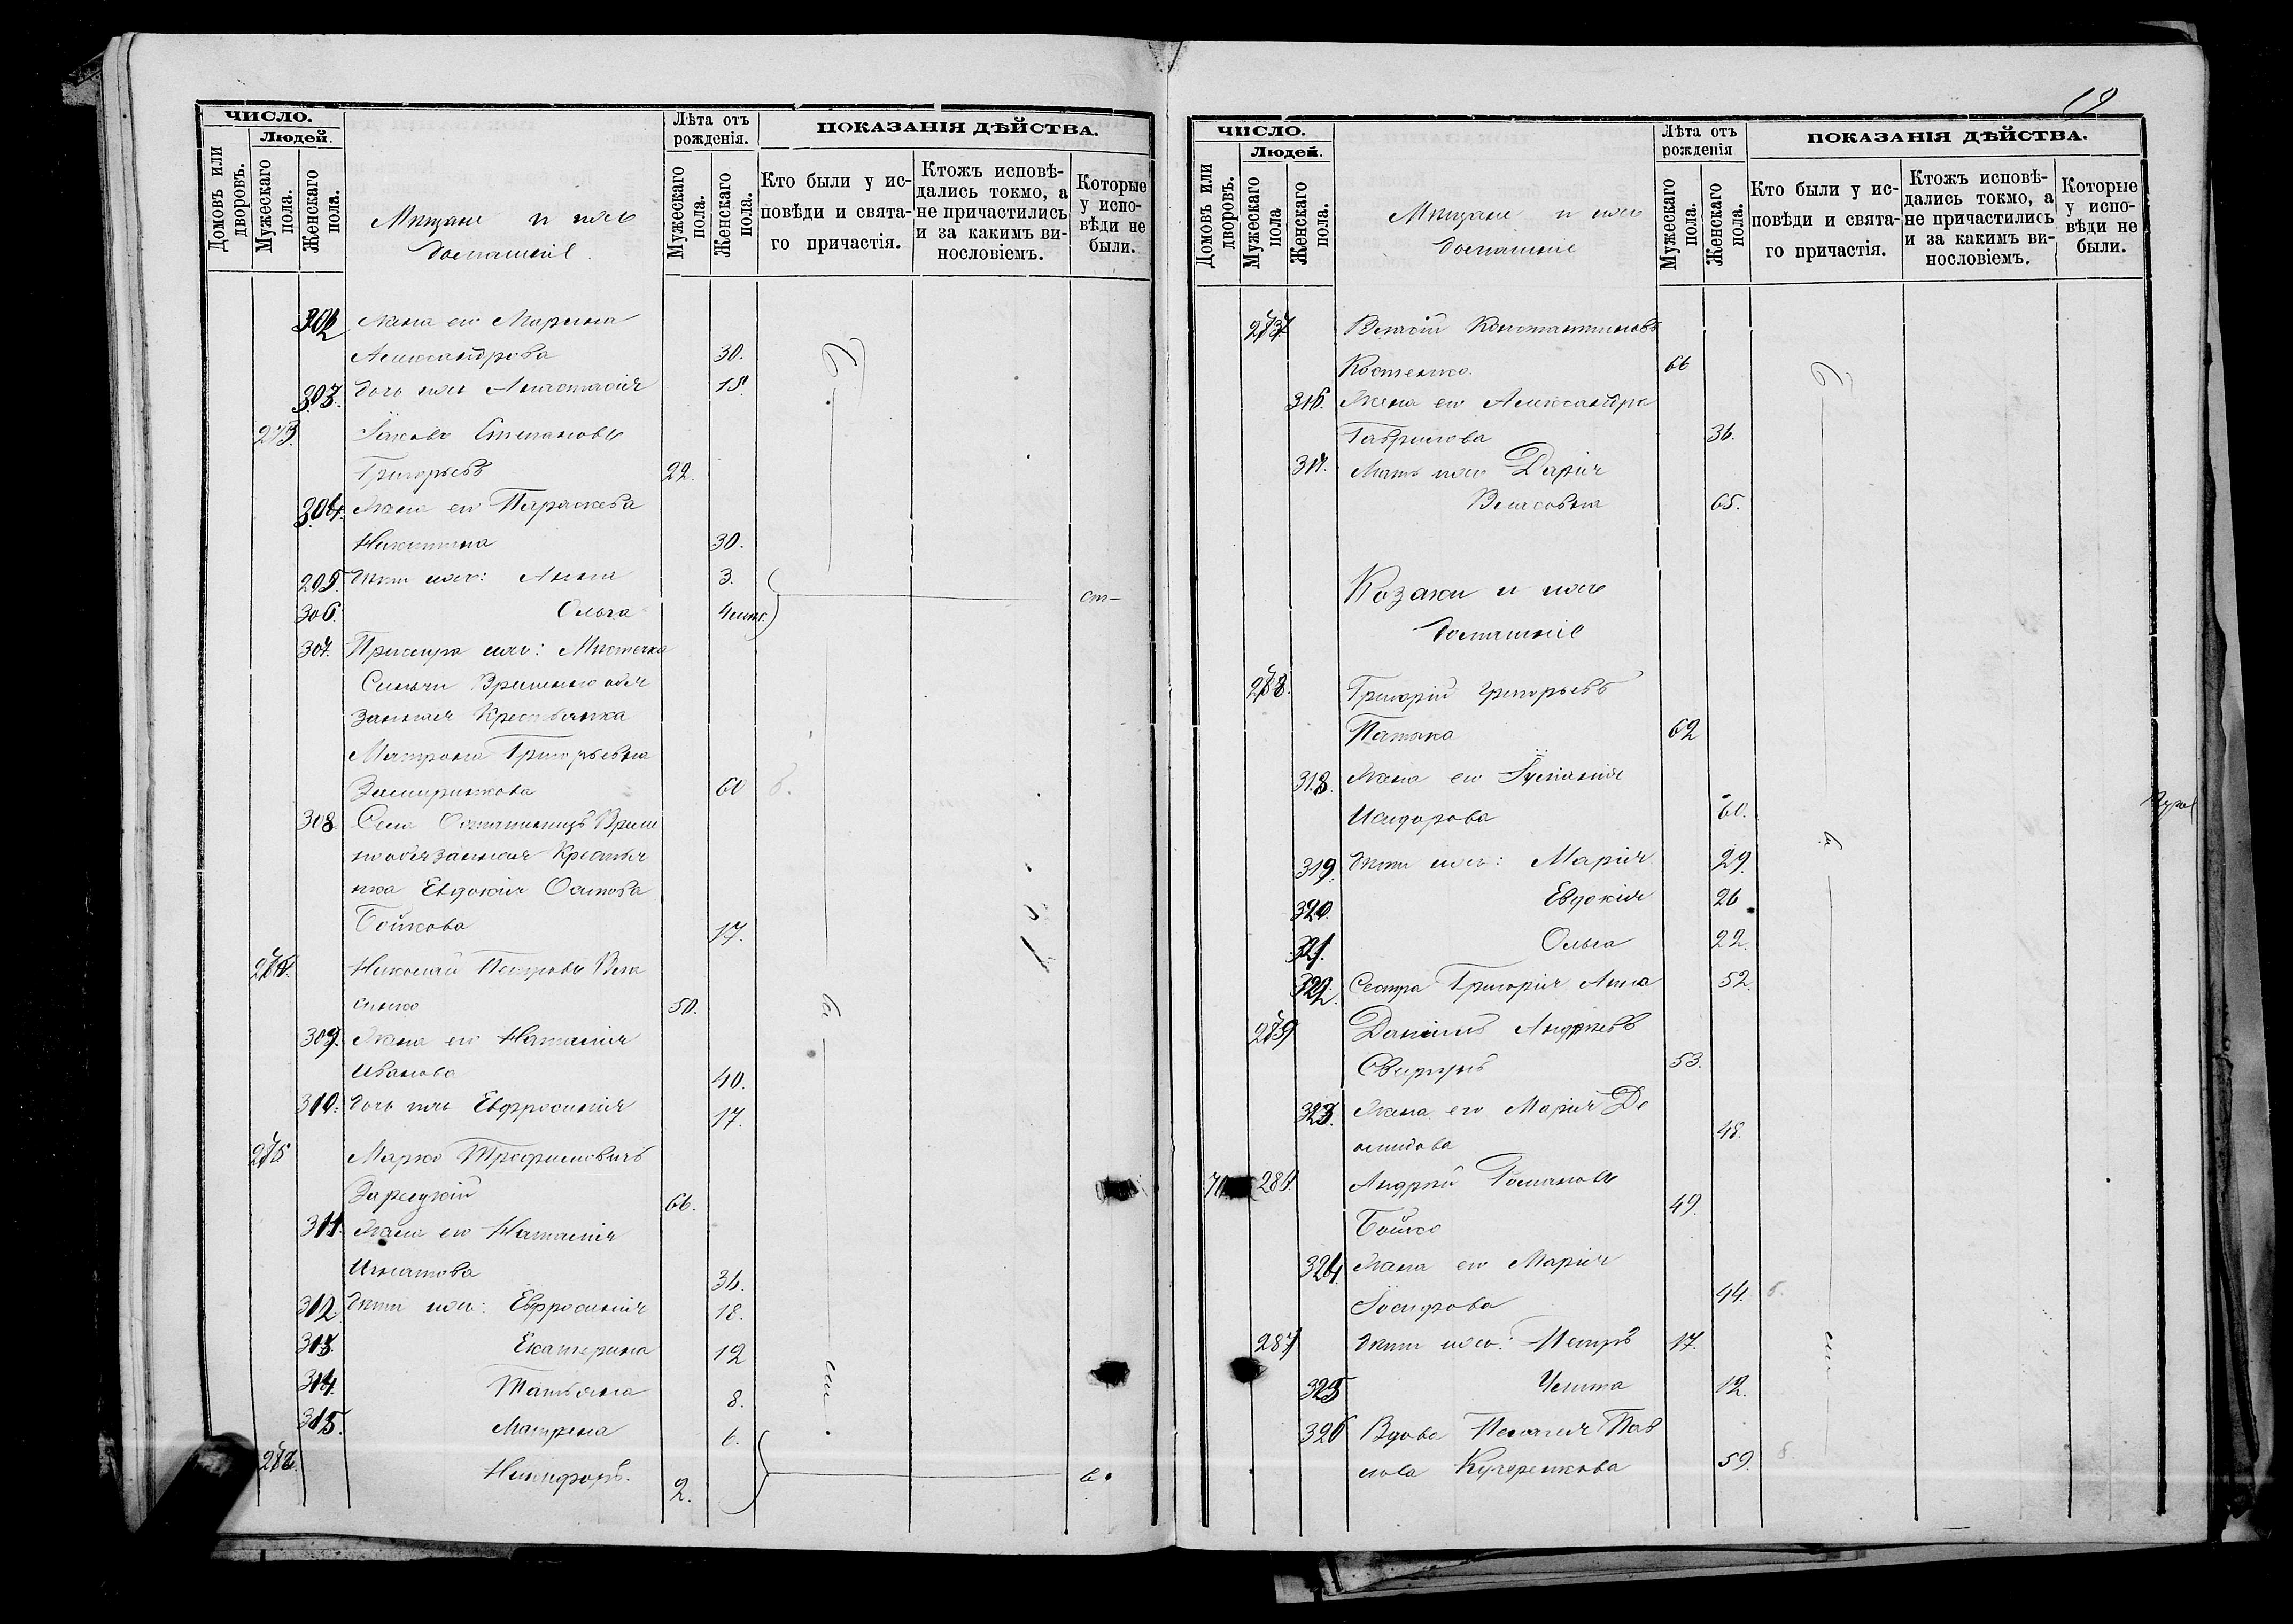 ЧИСЛО.
Людей.
Домовъ или дворовъ.
Мужескаго пола.
Женскаго пола.
Мѣщане и ихъ
домашніе.
Лѣта отъ рожденія.
Мужескаго пола.
Женскаго пола.
ПОКАЗАНІЯ ДѢЙСТВА.
Кто были у ис-
повѣди и свята-
го причастія.
Ктожъ исповѣ-
дались токмо, а
не причастились
и за какимъ ви-
нословіемъ.
Которые
у испо-
вѣди не
были.
302 Жена его Марина
Александрова 30.
303. Дочь ихъ Анастасія 18.
273. Іаковъ Степановъ
Григорьевъ 22.
304. Жена его Параскева
Никитина 30.
305. Дѣти ихъ: Анна 3.
306. Ольга
307. Прислуга ихъ: Мѣстечка
Смѣлы Временно обя
занная Крестьянка
Матрона Григорьевна
60
308. Села Временно
обязанная Крестья
нка Евдокія
Бойкова 17.
274. Николай Петровъ Вла
сенко 50.
309. Жена его Наталія
Иванова 40.
310. Дочь ихъ Евфросинія 17.
275 Марко Трофимовичъ
Зарудній 66.
311. Жена его Наталія
Игнатова 36.
312. Дѣти ихъ: Евфросинія 18.
313. Екатерина 12
314. Татьяна 8.
315. Матрена 6.
Никифоръ. 2.
19
ЧИСЛО.
Людей.
Домовъ или дворовъ.
Мужескаго пола
Женскаго пола.
Мѣщане и ихъ
домашніе
Лѣта отъ рожденія
Мужескаго пола.
Женскаго пола.
ПОКАЗАНІЯ ДѢЙСТВА.
Кто были у ис-
повѣди и свята-
го причастія.
Ктожъ исповѣ-
дались токмо, а
не причастились
и за какимъ ви-
нословіемъ.
Которые
у испо-
вѣди не
были.
277 Власій Константиновъ
Костенко. 66
316. Жена его Александра
Гаврилова 36.
317. Мать ихъ Дарія
Власовна 65.
Козаки и ихъ
домашніе
278. Григорій Григорьевъ
62
318. Жена его Іуліанія
Исидорова 60.
319. Дѣти ихъ: Марія 29.
320. Евдокія 26
321. Ольга 22.
322. Сестра Григорія Анна 52.
279 Даніилъ Андреевъ
Свирида 53.
323. Жена его Марія Де
омидова 48.
280. Андрей Романовъ
Бойко 49.
324. Жена его Марія
Іосифова 44.
281 Дѣти ихъ: Петръ 17.
325 Улита 12.
326 Вдова Пелагія Пав
лова Кучеренкова 59.